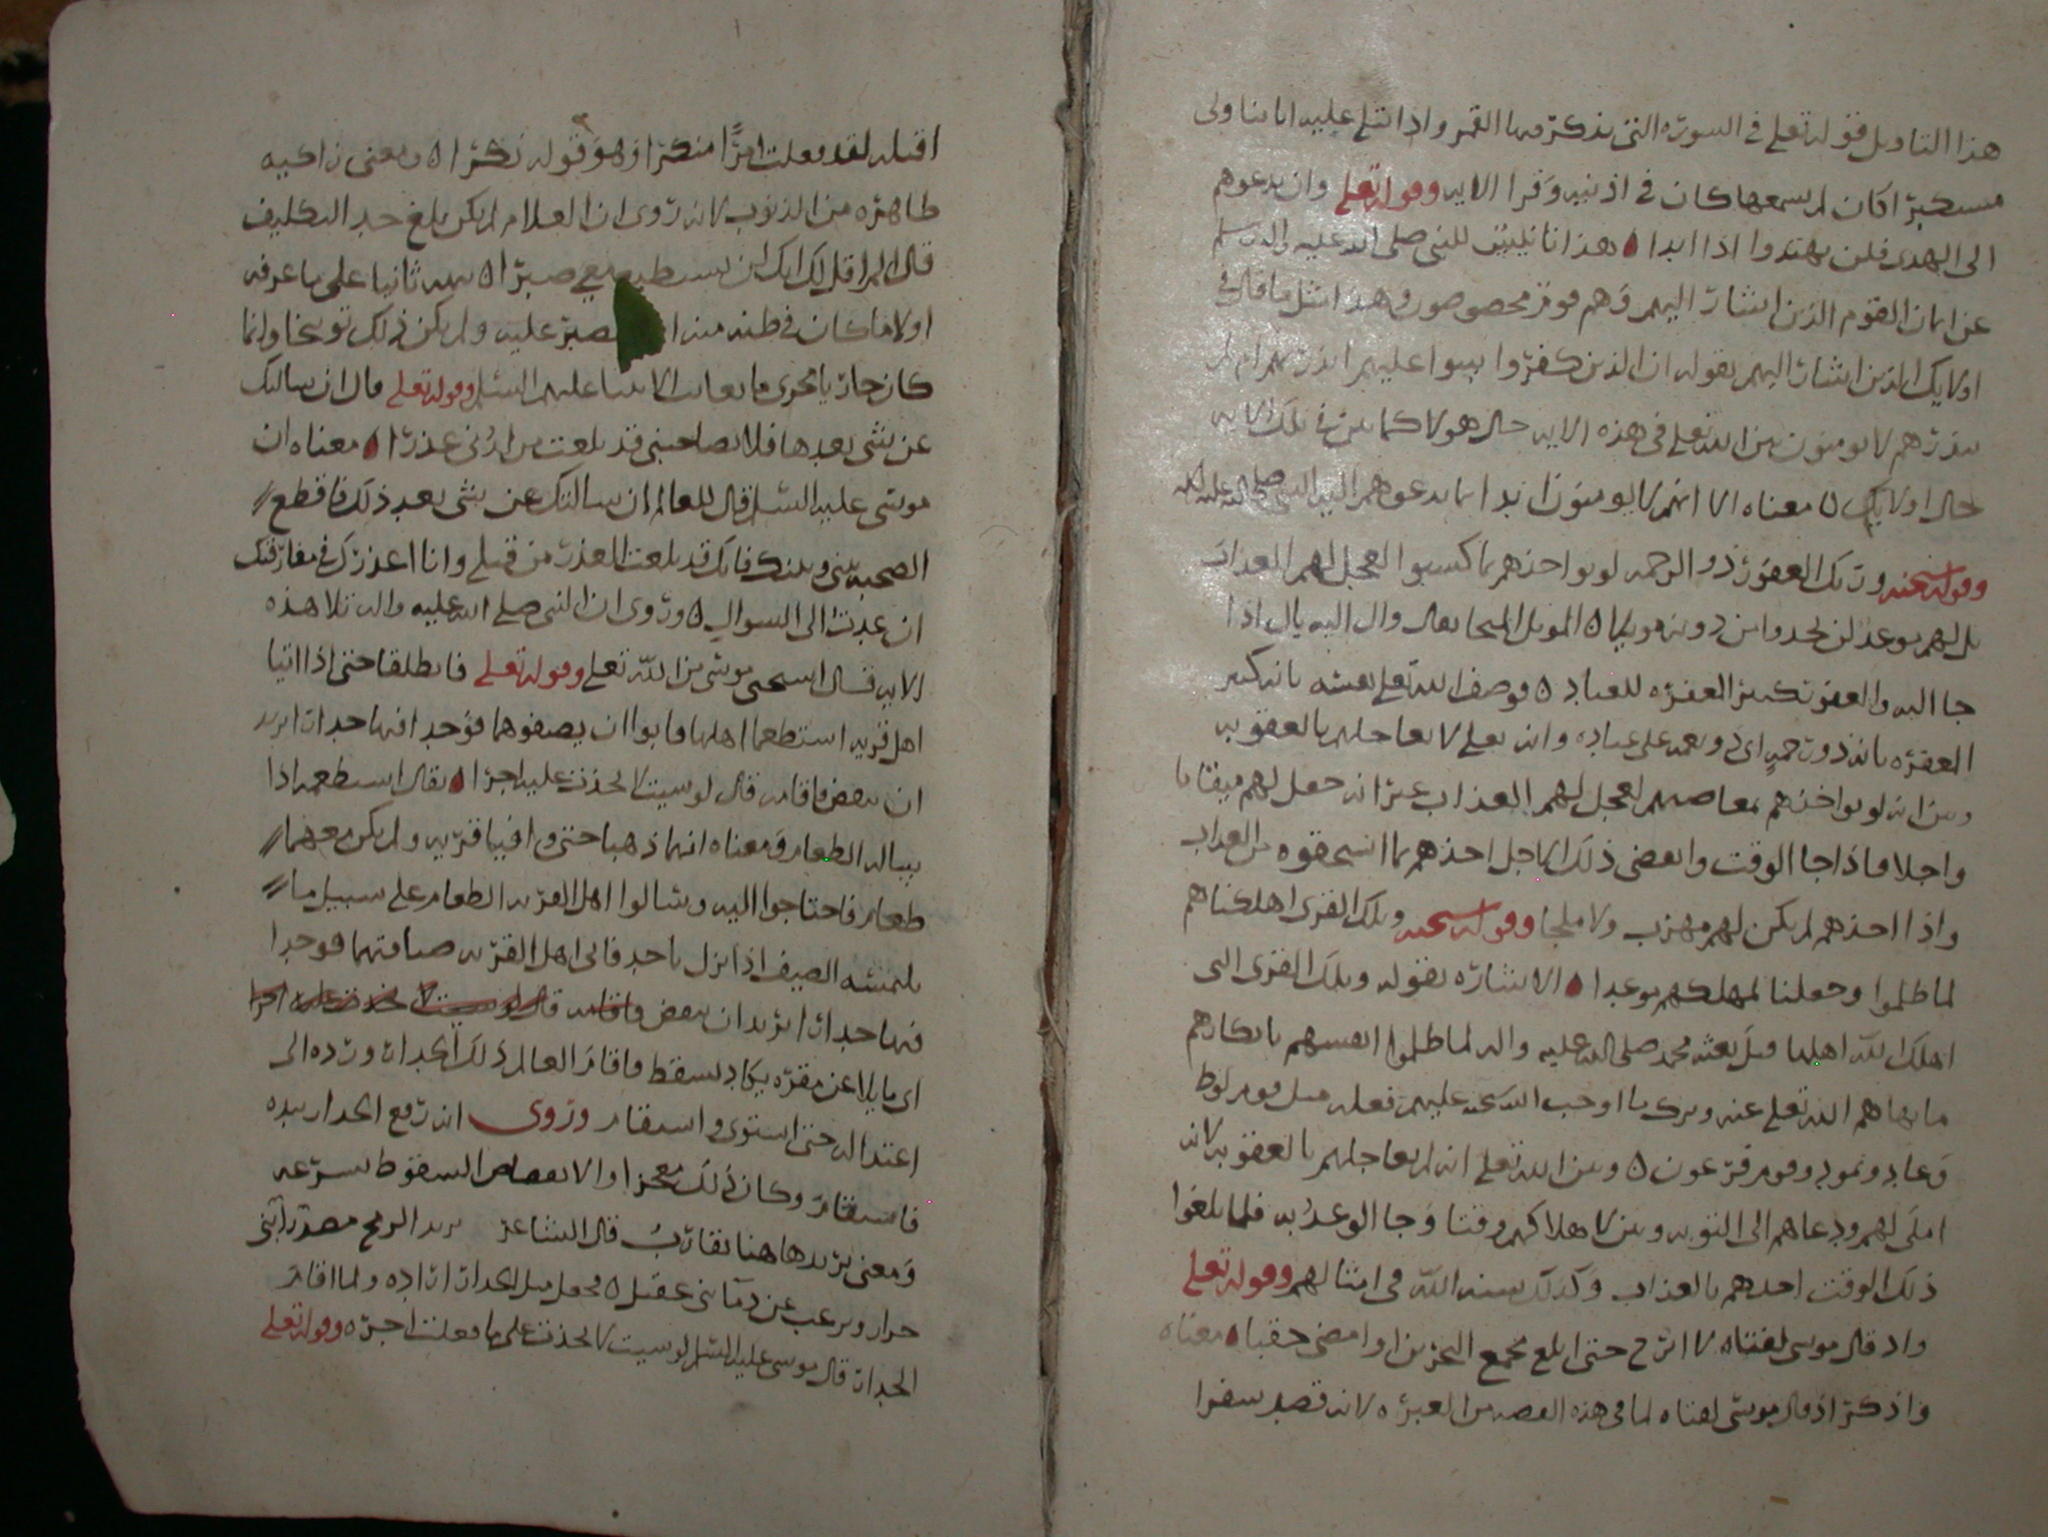 هذا التاويل قوله تعلى في السورة التى يذكر فيها القمر واذا تتلى عليه اياتنا ولى
مستكبرا كان لم يسمعها كان في اذنيه وقرا الايه وقوله تعلى وان تدعوهم
الى الهدى فلن يهتدوا اذا ابدا هذا للنبى صلى الله عليه واله وسلم
عن ايمان القوم الذين اشار اليهم وهم قوم مخصوصون وهذا مثل ما قال في
اولايك الذين اشار اليهم بقوله ان الذين كفروا سوا عليهم انذرتهم ام لم
تنذرهم لا يومنون بين الله تعلى في هذه الايه حال هولا كما بين في تلك الايه
حال اولايك معناه الا انهم لا يومنون ابدا بما يدعوهم اليه النبي صلى الله عليه واله
وقوله سبحنه وربك الغفور ذو الرحمه لو يواخذهم بما كسبوا لعجل لهم العذاب
بل لهم موعد لن يجدوا من دونه مويلا الموئل الملجا يقال وال اليه يال اذا
جا اليه والغفور تكثير المغفره للعباد ووصف الله تعلى نفسه بانه كثير
المغفره بانه ذو رحمة اى ذو نعمه على عباده وانه تعلى لا يعاجلهم بالعقوبه
وبين انه لو يواخذهم بمعاصيهم لعجل لهم العذاب غير انه جعل لهم ميقاتا
واجلا فاذا جا الوقت وانقضى ذلك الاجل اخذهم بما استحقوه من العذاب
واذا اخذهم لم يكن لهم مهرب ولا ملجا وقوله سبحنه وتلك القرى اهلكناهم
لما ظلموا وجعلنا لمهلكهم موعدا الاشاره بقوله وتلك القرى الى
اهلك الله اهلها قبل بعثه محمد صلى الله عليه واله لما ظلموا انفسهم بانكارهم
ما نهاهم الله تعلى عنه وترك ما اوجب الله عليهم فعله مثل قوم لوط
وعاد وثمود وقوم فرعون وبين الله تعلى انه لم يعاجلهم بالعقوبه لانه
املى لهم ودعاهم الى التوبه وبين لاهلاكهم وقتا وجا الوعد به فلما بلغوا
ذلك الوقت اخذهم بالعذاب وكذلك سنه الله في امثالهم وقوله تعلى
واذ قال موسى لفتاه لا ابرح حتى ابلغ مجمع البحرين او امضى حقبا معناه
واذكر اذ قال موسى لفتاه لما في هذه القصه من العبره لانه قصد سفرا
اقبله لقد فعلت امرا منكرا وهو قوله نكرا ومعنى زاكيه
طاهره من الذنوب لانه روى ان الغلام لم يكن بلغ حد التكليف
قال الم اقل لك انك لن تستطيع معي صبرا نبهه ثانيا على ما عرفه
اولا ما كان في ظنه منه يصبر عليه ولم يكن ذلك توبيخا وانما
كان جاريا مجرى ما يعاتب الانبيا عليهم السلم وقوله تعلى قال ان سالتك
عن شى بعدها فلا تصاحبنى قد بلغت من لدنى عذرا معناه ان
موسى عليه السلم قال للعالم ان سالتك عن شى بعد ذلك فاقطع
الصحبه بينى وبينك فانك قد بلغت العذر من قبلي وانا اعذرك في مفارقتك
ان عدت الى السوال وروى ان النبى صلى الله عليه واله تلا هذه
الايه فقال استحى موسى من الله تعلى وقوله تعلى فانطلقا حتى اذا اتيا
اهل قريه استطعما اهلها فابوا ان يضيفوهما فوجدا فيها جدارا يريد
ان ينقض فاقامه قال لو شيت لاتخذت عليه اجرا يقال استطعمه اذا
ساله الطعام ومعناه انهما ذهبا حتى وافيا قريه ولم يكن معهما
طعام فاحتاجوا اليه وسالوا اهل القريه الطعام على سبيل ما
يلتمسه الضيف اذا نزل باحد فابى اهل القريه ضيافتهما فوجدا
فيها جدارا يريد ان ينقض فاقامه قال لو شيت لاتخذت عليه اجرا
اى مايلا عن مقره يكاد يسقط فاقام العالم ذلك الجدار ورده الى
اعتداله حتى استوى واستقام وروى انه رفع الجدار بيده
فاستقام وكان ذلك معجزا والانقضاض السقوط بسرعه
ومعنى يريد هاهنا يقارب قال الشاعر يريد الرمح صدر ابى
ويرغب عن دما بنى عقيل فجعل ميل الجدار اراده ولما اقام
الجدار قال موسى عليه السلم لو شيت لاتخذت على ما فعلت اجره وقوله تعلى